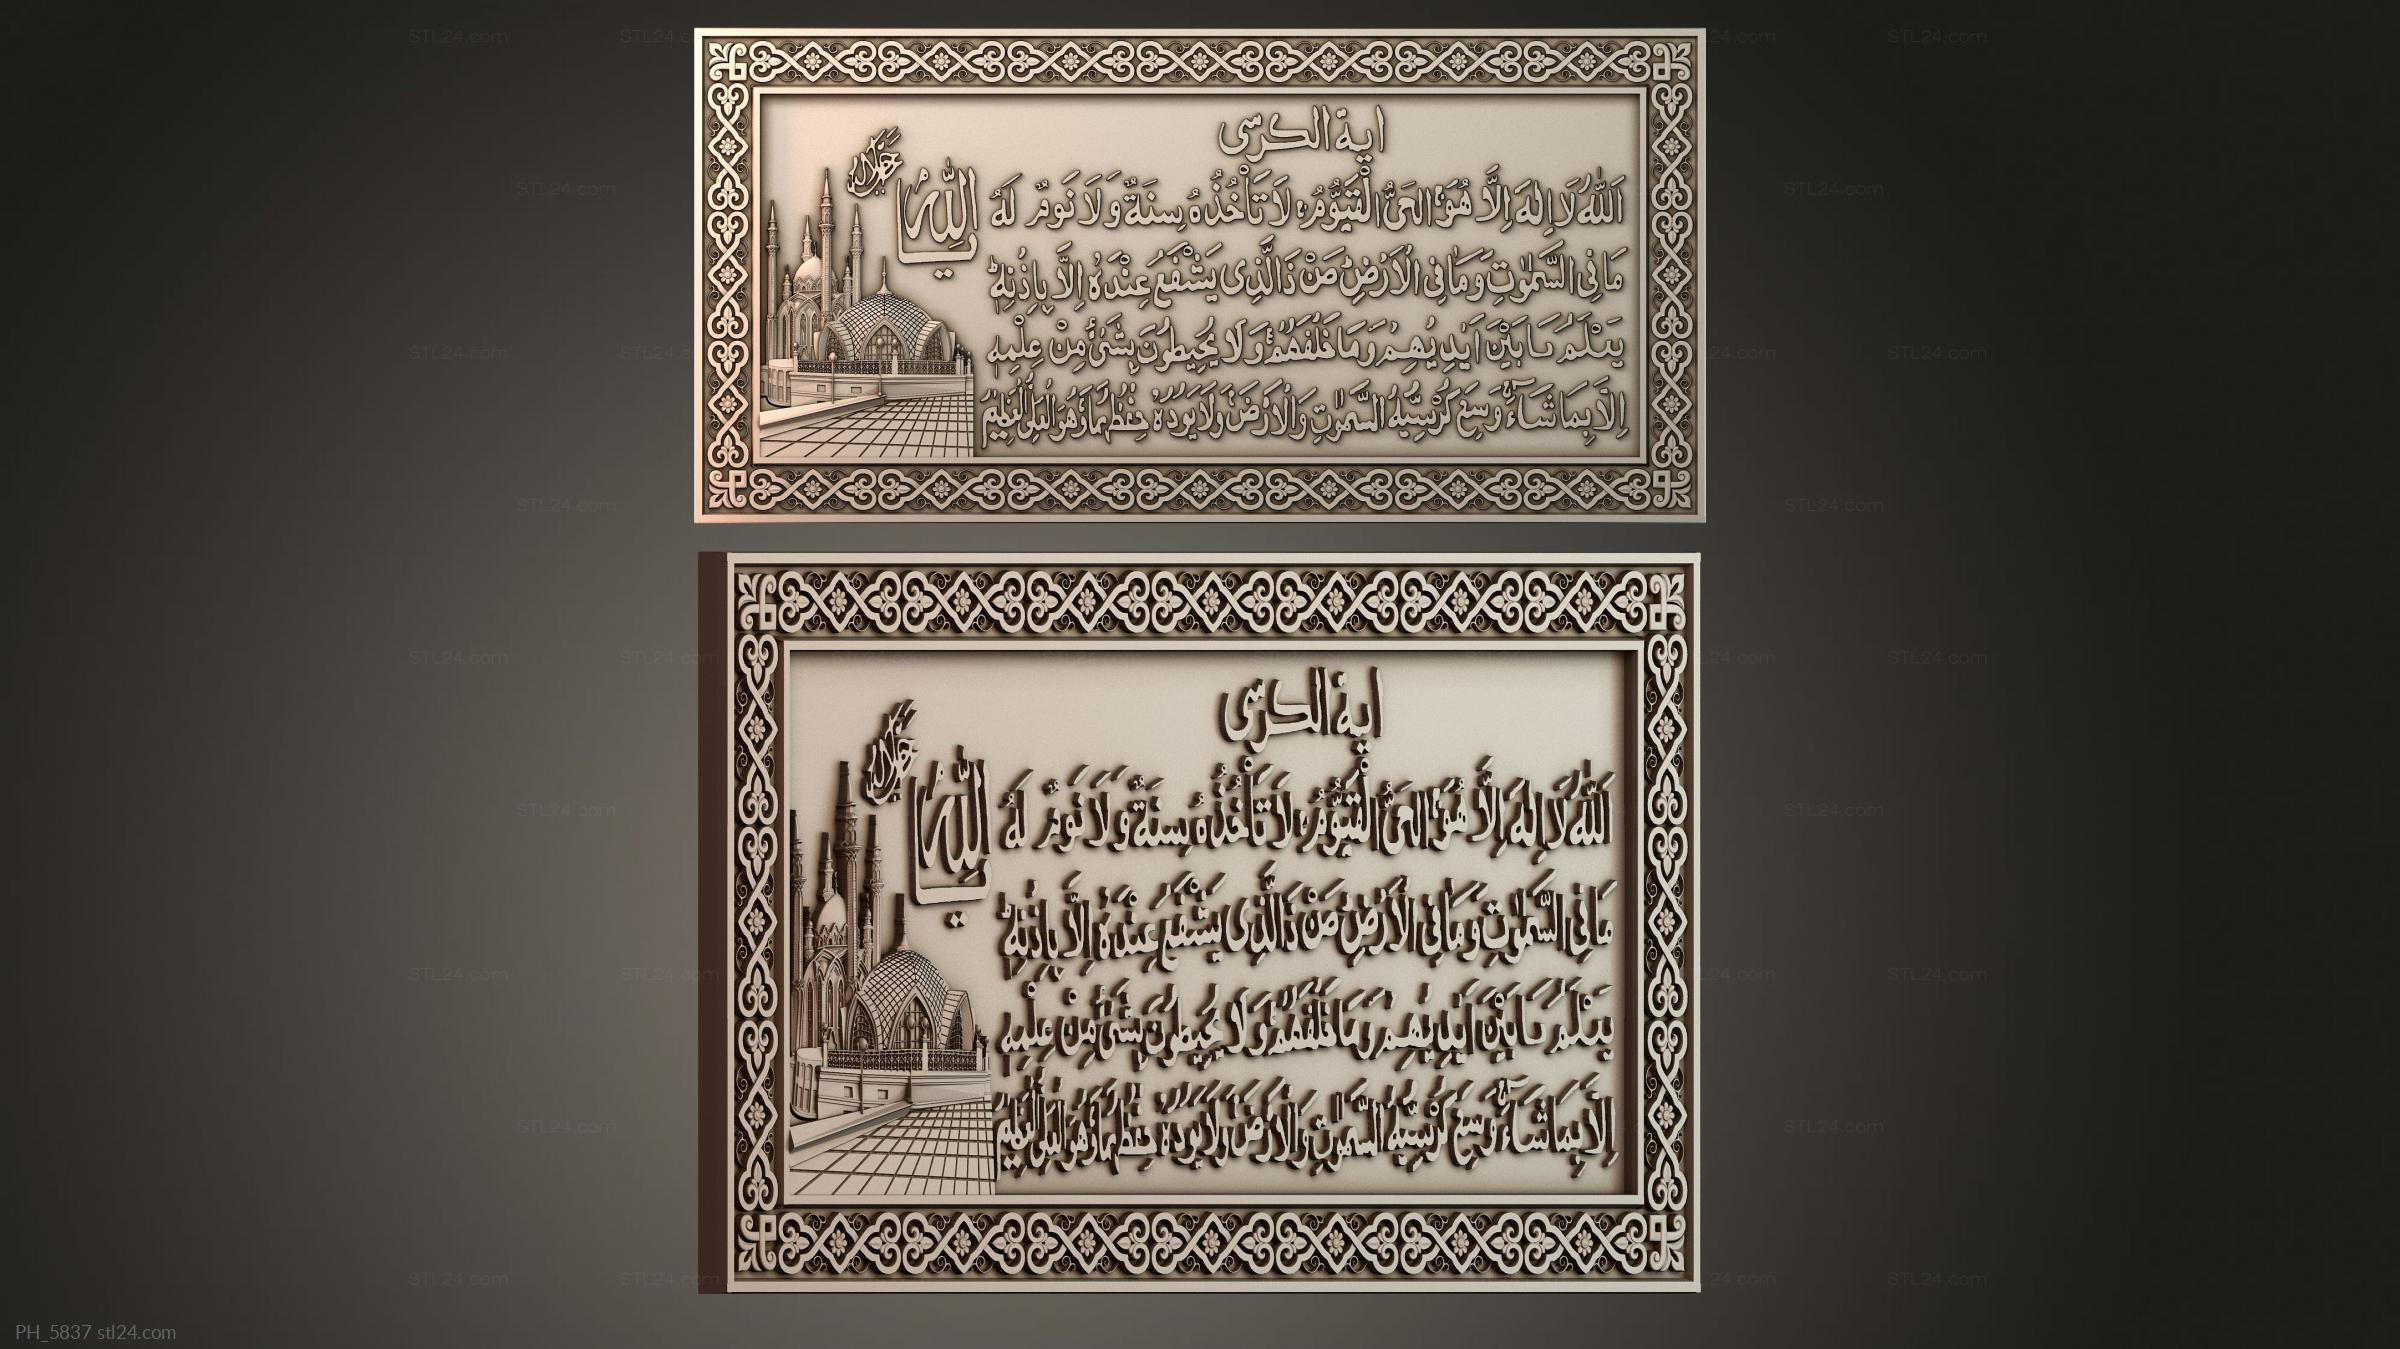 اية الكرسى
جل جلاله
يا الله
اَللّٰهُ لَا اِلٰهَ اِلَّا هُوَ الحَىُّ الْقَيُّوْمُ لَا تَأْخُذُهُ سِنَةٌ وَلَا نَوْمٌ لَهُ
مَا فِى السَّمٰوٰتِ وَمَا فِى الْاَرْضِ مَنْ ذَا الَّذِى يَشْفَعُ عِنْدَهُ اِلَّا بِاِذْنِهٖ
يَعْلَمُ مَا بَيْنَ اَيْدِيْهِمْ وَمَا خَلْفَهُمْ وَلَا يُحِيطُوْنَ بِشَىْءٍ مِنْ عِلْمِهٖ
اِلَّا بِمَا شَاءَ وَسِعَ كُرْسِيُّهُ السَّمٰوٰتِ وَالْاَرْضَ وَلَا يَؤُدُهُ حِفْظُهُمَا وَهُوَ الْعَلِىُّ الْعَظِيْمُ
اية الكرسى
جل جلاله
يا الله
اَللّٰهُ لَا اِلٰهَ اِلَّا هُوَ الحَىُّ الْقَيُّوْمُ لَا تَأْخُذُهُ سِنَةٌ وَلَا نَوْمٌ لَهُ
مَا فِى السَّمٰوٰتِ وَمَا فِى الْاَرْضِ مَنْ ذَا الَّذِى يَشْفَعُ عِنْدَهُ اِلَّا بِاِذْنِهٖ
يَعْلَمُ مَا بَيْنَ اَيْدِيْهِمْ وَمَا خَلْفَهُمْ وَلَا يُحِيطُوْنَ بِشَىْءٍ مِنْ عِلْمِهٖ
اِلَّا بِمَا شَاءَ وَسِعَ كُرْسِيُّهُ السَّمٰوٰتِ وَالْاَرْضَ وَلَا يَؤُدُهُ حِفْظُهُمَا وَهُوَ الْعَلِىُّ الْعَظِيْمُ
PH_5837 stl24.com
STL24.com